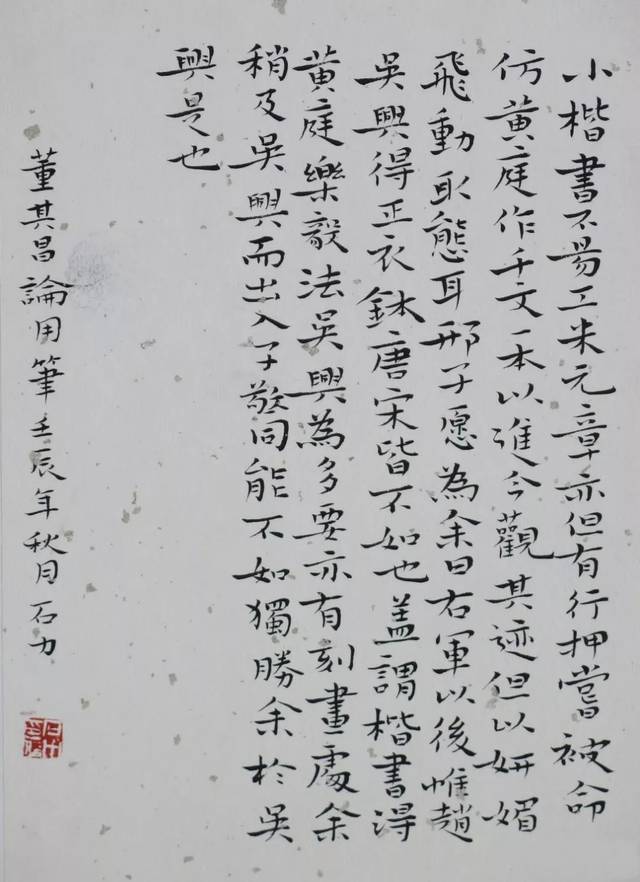 小楷書不易工米元章亦但有行押嘗被命
仿黃庭作千文一本以進今觀其迹但以妍媚
飛動取態耳邢子愿為余曰右軍以後惟趙
吳興得正衣鉢唐宋皆不如也蓋謂楷書得
黃庭樂毅法吳興為多要亦有刻畫處余
稍及吳興而出入子敬同能不如獨勝余於吳
興是也
董其昌論用筆壬辰年秋月石力